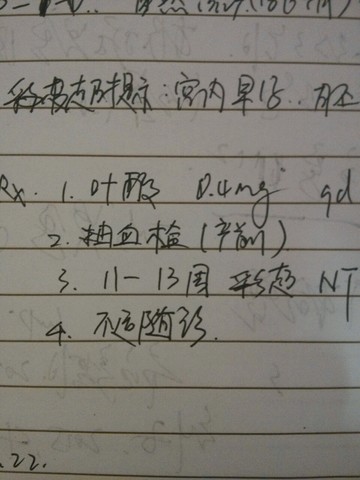 彩超提示:宫内早孕.
Rx. 1. 叶酸 0.4mg qd
2. 抽血检(产前)
3. 11-13周 彩超 NT
4. 不适随诊.
.22.